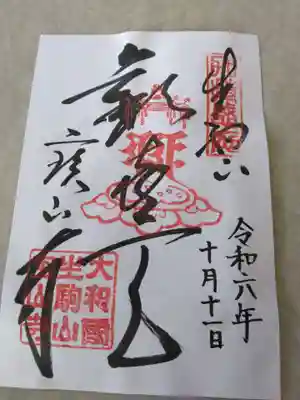 生駒山
歓喜天
寳山寺
令和六年
十月十一日
大和國
生駒山
寳山寺